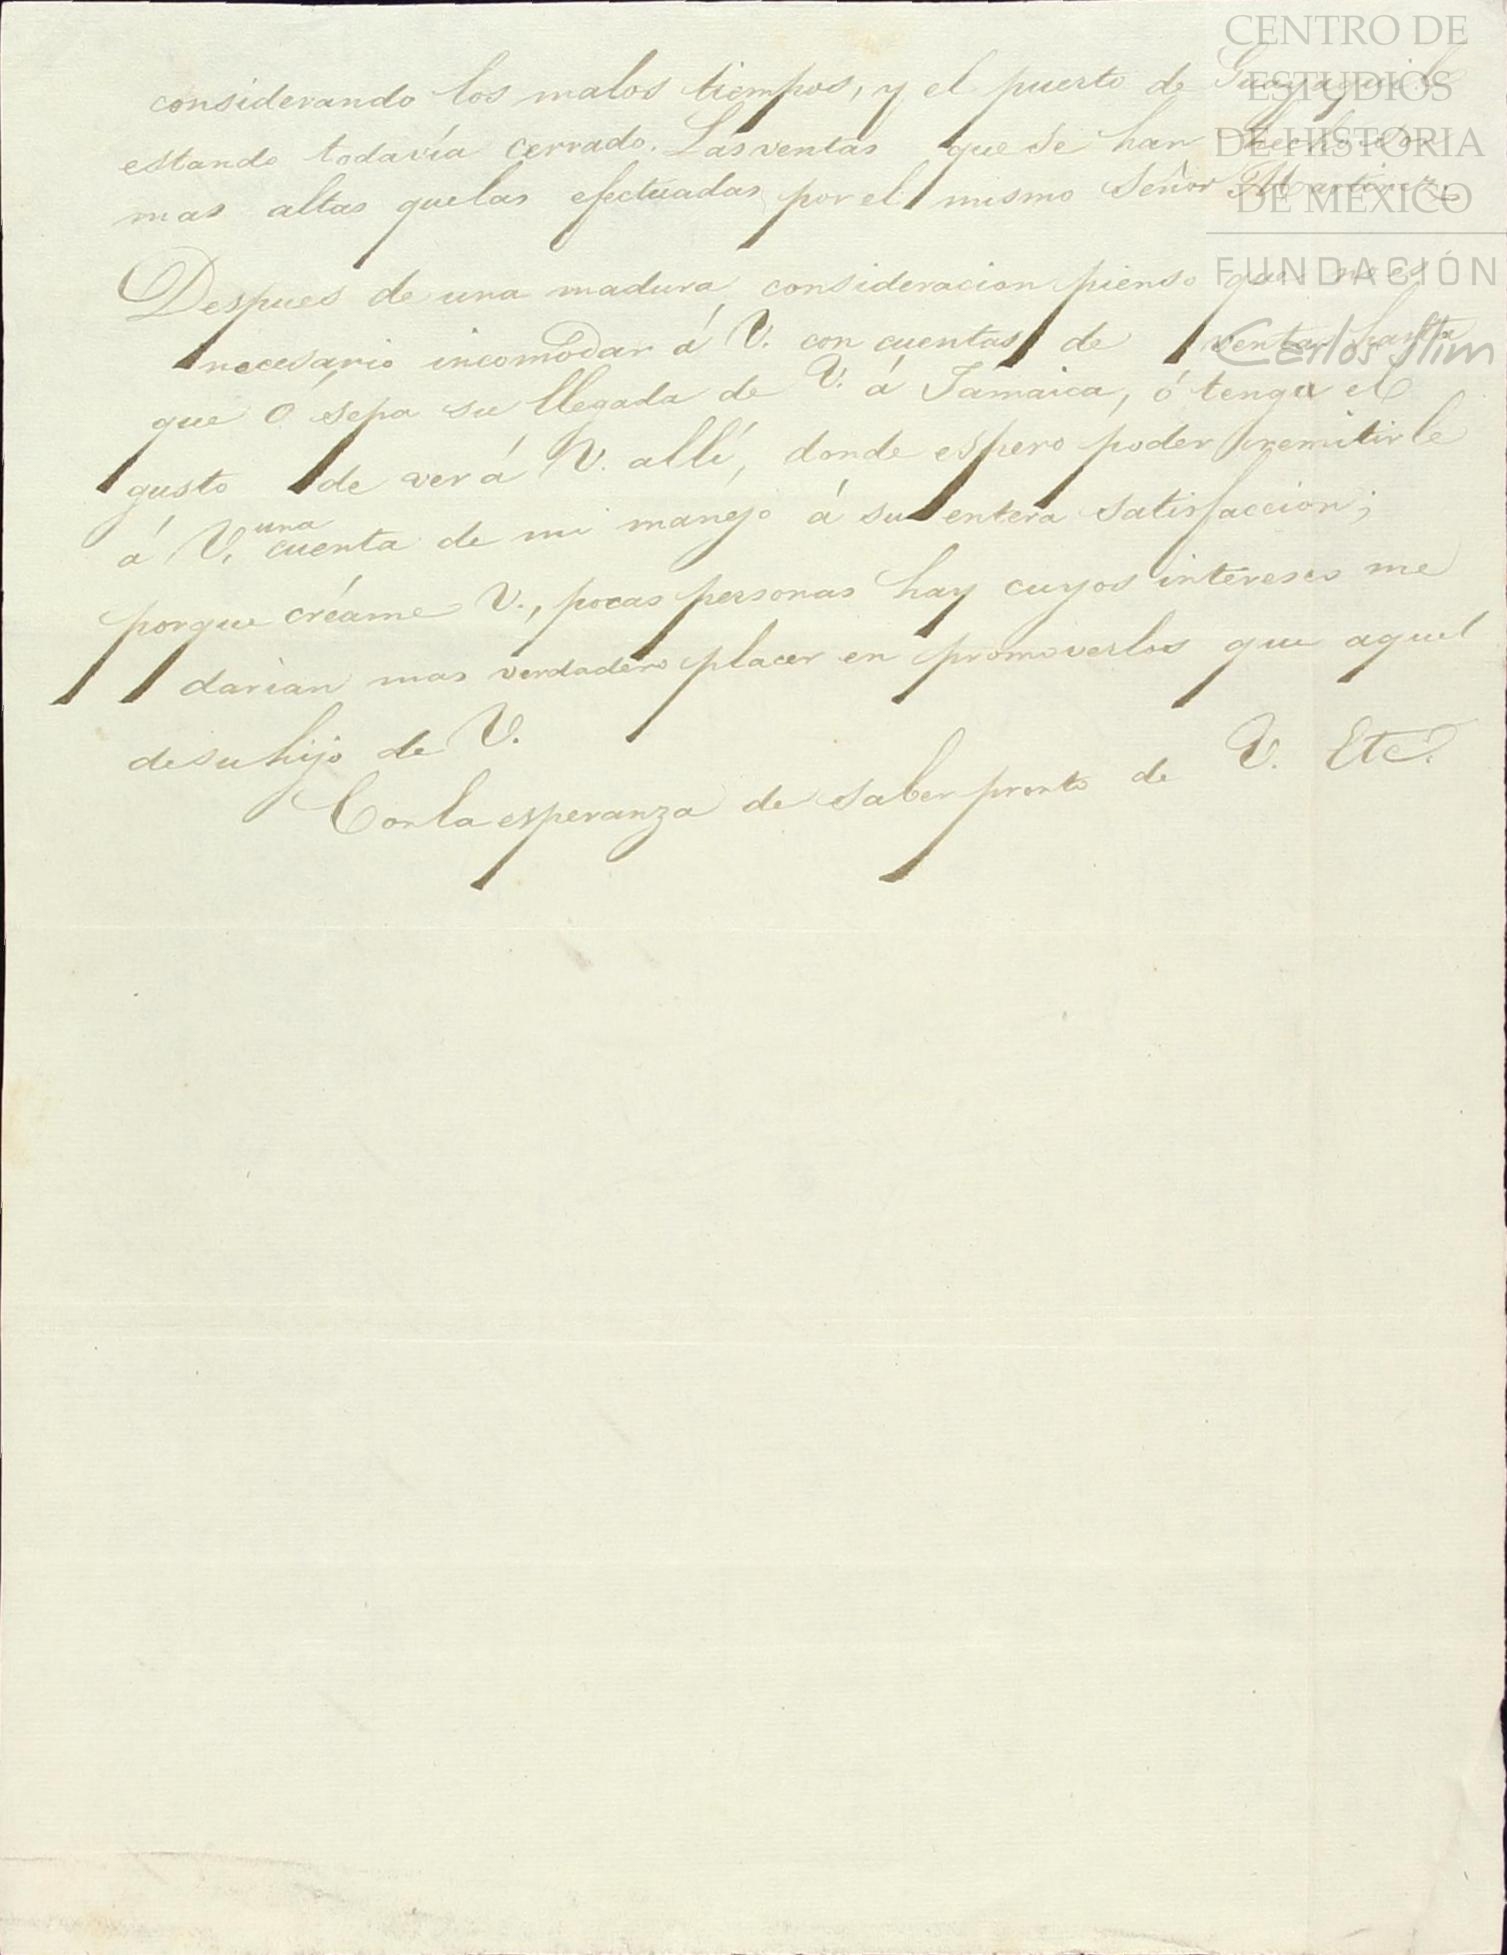 CENTRO DE
ESTUDIOS
DE HISTORIA
DE MEXICO
FUNDACIÓN
Carlos Slim
considerando los malos tiempos, y el puerto de Guayaquil
estando todavía cerrado. Las ventas que se han hecho son
mas altas que las efectuadas por el mismo Señor Martinez.
Despues de una madura consideracion pienso que no es
necesario incomodar á V. con cuentas de ventas hasta
que ó sepa su llegada de V. á Jamaica, ó tenga el
gusto de ver á V. allí, donde espero poder remitirle
á V. una cuenta de mi manejo á su entera satisfaccion;
porque créame V., pocas personas hay cuyos intereses me
darian mas verdadero placer en promoverlos que aquel
de su hijo de V.
Con la esperanza de saber pronto de V. Etc.